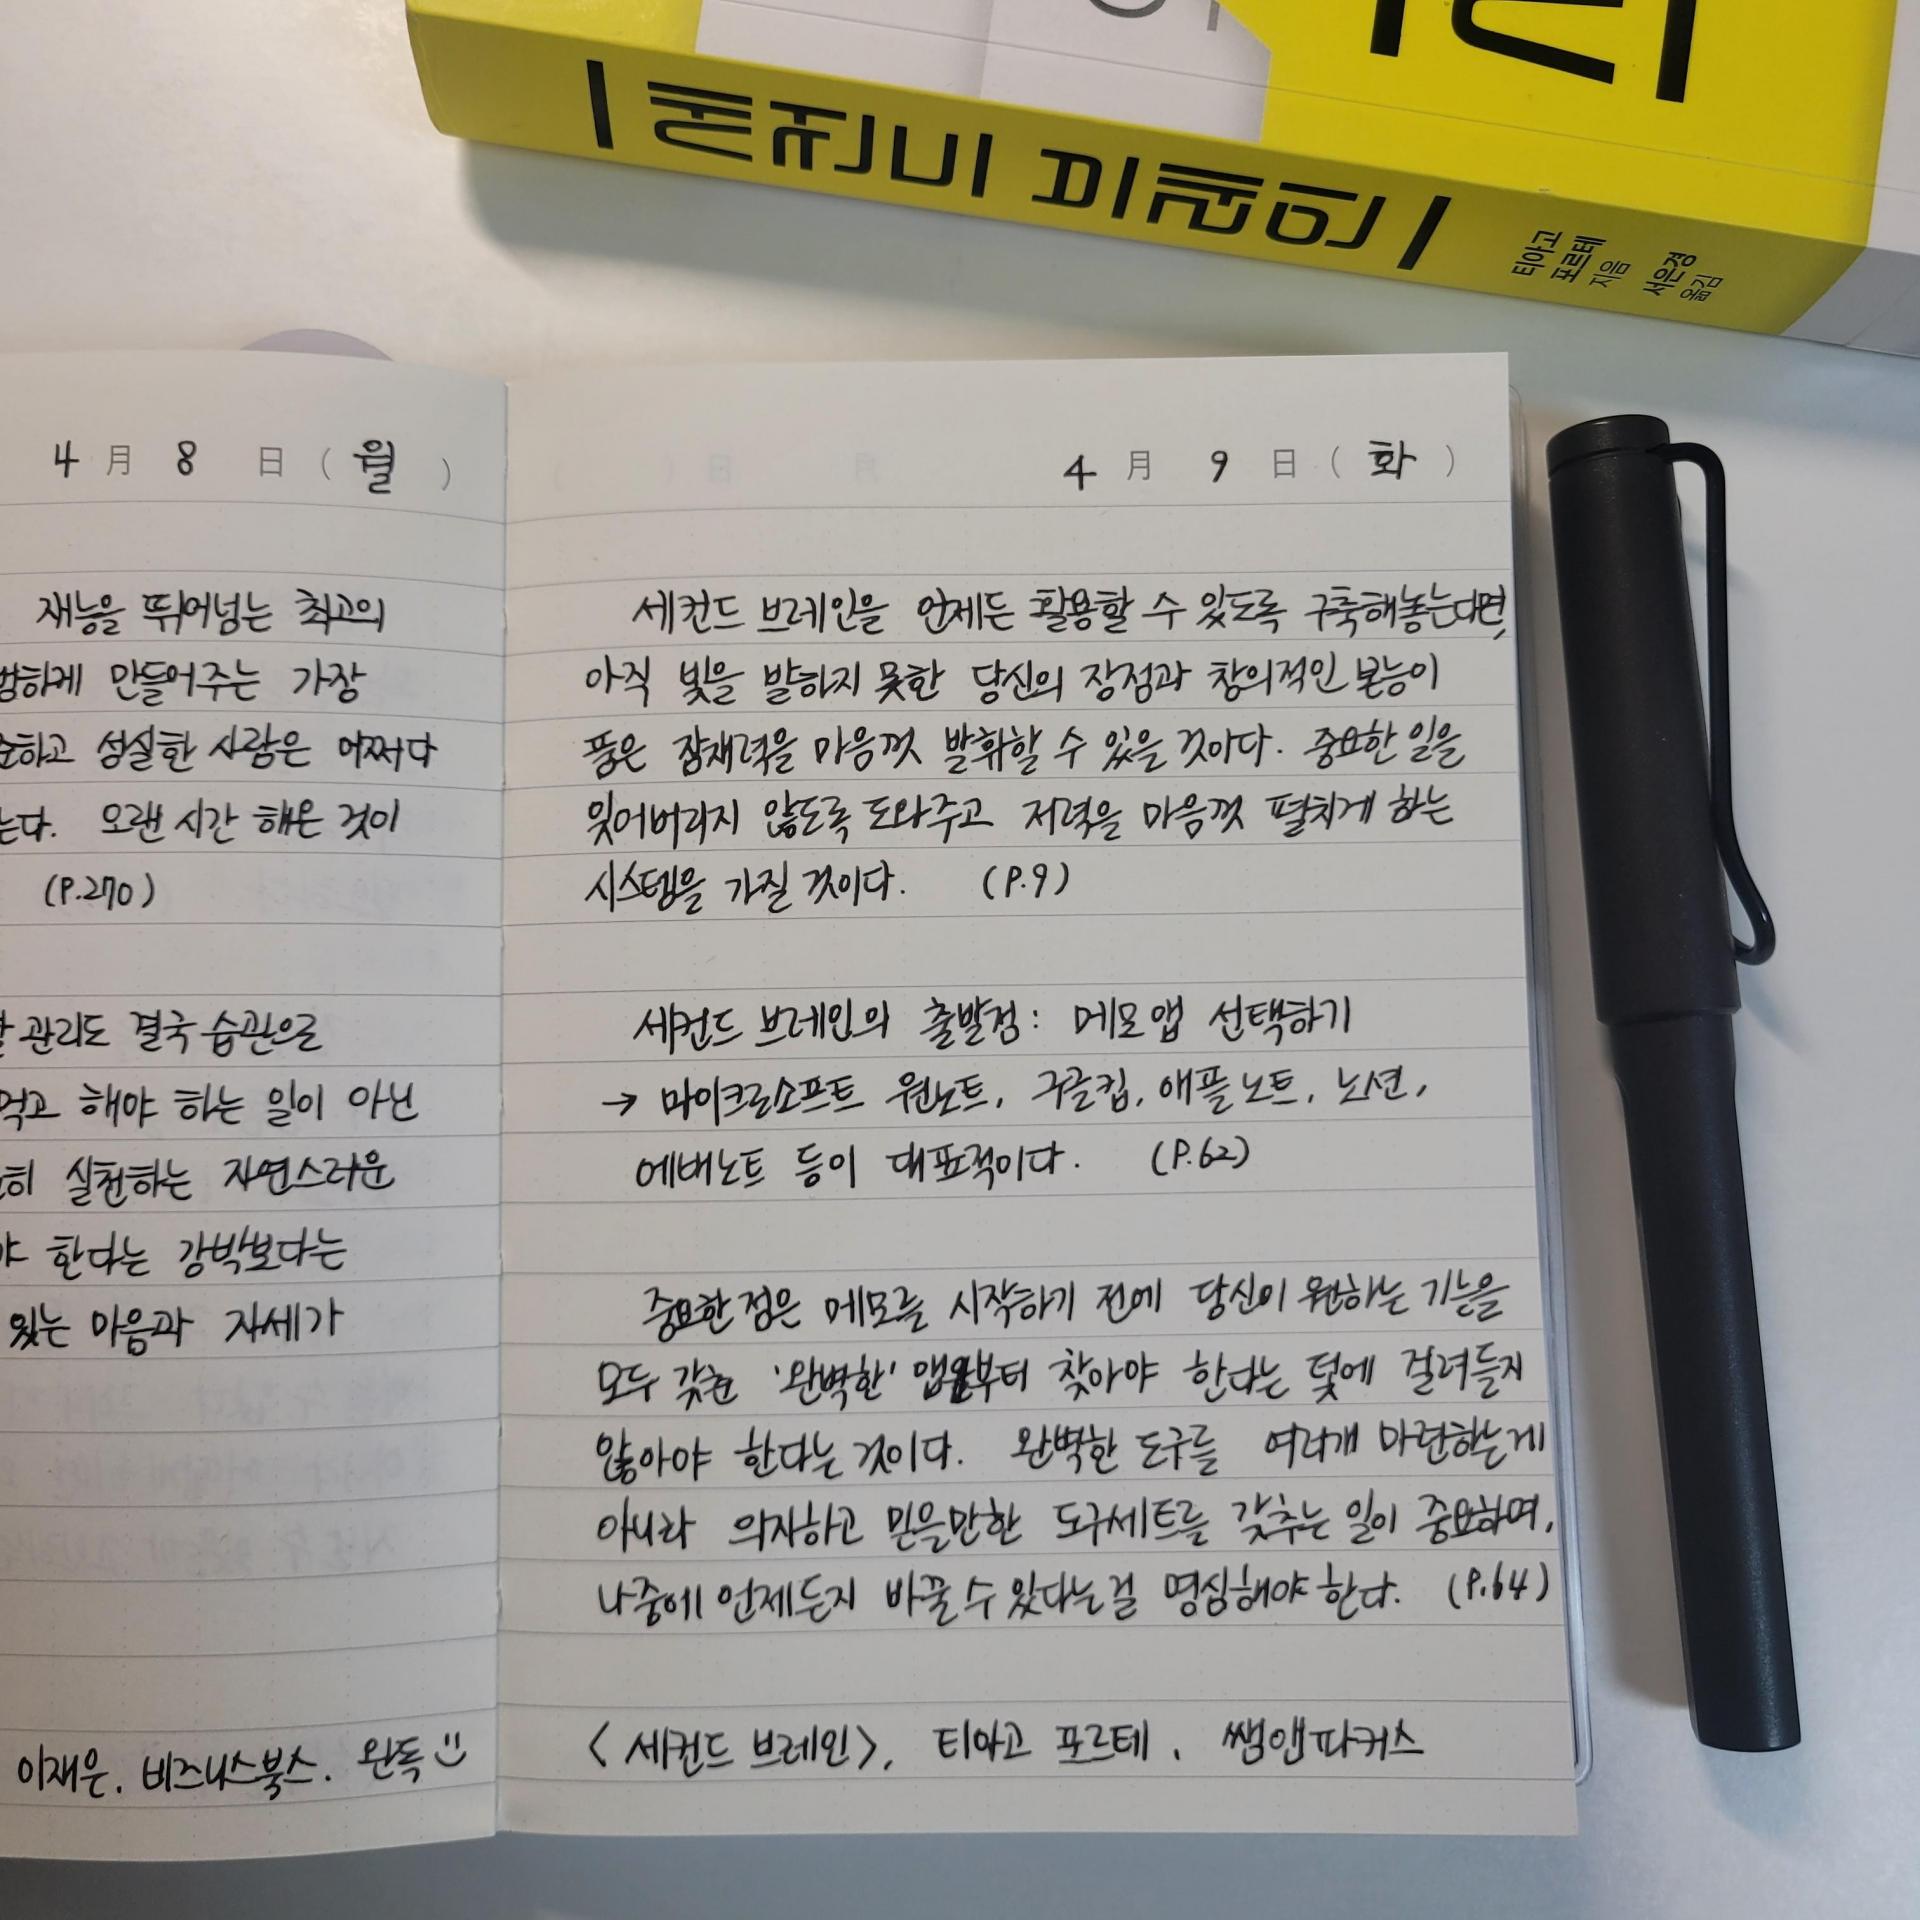 세컨드 브레인
티아고 포르테 지음
서은경 옮김
4 月 8 日 ( 월 )
재능을 뛰어넘는 최고의
범하게 만들어주는 가장
하고 성실한 사람은 어쩌다
는다. 오랜 시간 해온 것이
(P.270)
관리도 결국 습관으로
먹고 해야 하는 일이 아닌
히 실천하는 자연스러운
야 한다는 강박보다는
있는 마음과 자세가
이재은. 비즈니스북스. 완독
4 月 9 日 ( 화 )
세컨드 브레인을 언제든 활용할 수 있도록 구축해놓는다면,
아직 빛을 발하지 못한 당신의 장점과 창의적인 본능이
품은 잠재력을 마음껏 발휘할 수 있을 것이다. 중요한 일을
잊어버리지 않도록 도와주고 저력을 마음껏 펼치게 하는
시스템을 가질 것이다. (P.9)
세컨드 브레인의 출발점: 메모앱 선택하기
→ 마이크로소프트 원노트, 구글킵, 애플노트, 노션,
에버노트 등이 대표적이다. (P.62)
중요한 점은 메모를 시작하기 전에 당신이 원하는 기능을
모두 갖춘 '완벽한' 앱부터 찾아야 한다는 덫에 걸려들지
않아야 한다는 것이다. 완벽한 도구를 여러개 마련하는게
아니라 의지하고 믿을만한 도구세트를 갖추는 일이 중요하며,
나중에 언제든지 바꿀 수 있다는걸 명심해야 한다. (P.64)
<세컨드 브레인>, 티아고 포르테, 쌤앤파커스